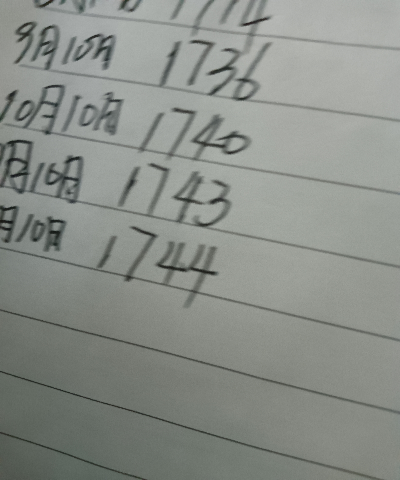 1714
9月10日 1736
10月10日 1740
月10日 1743
月10日 1744